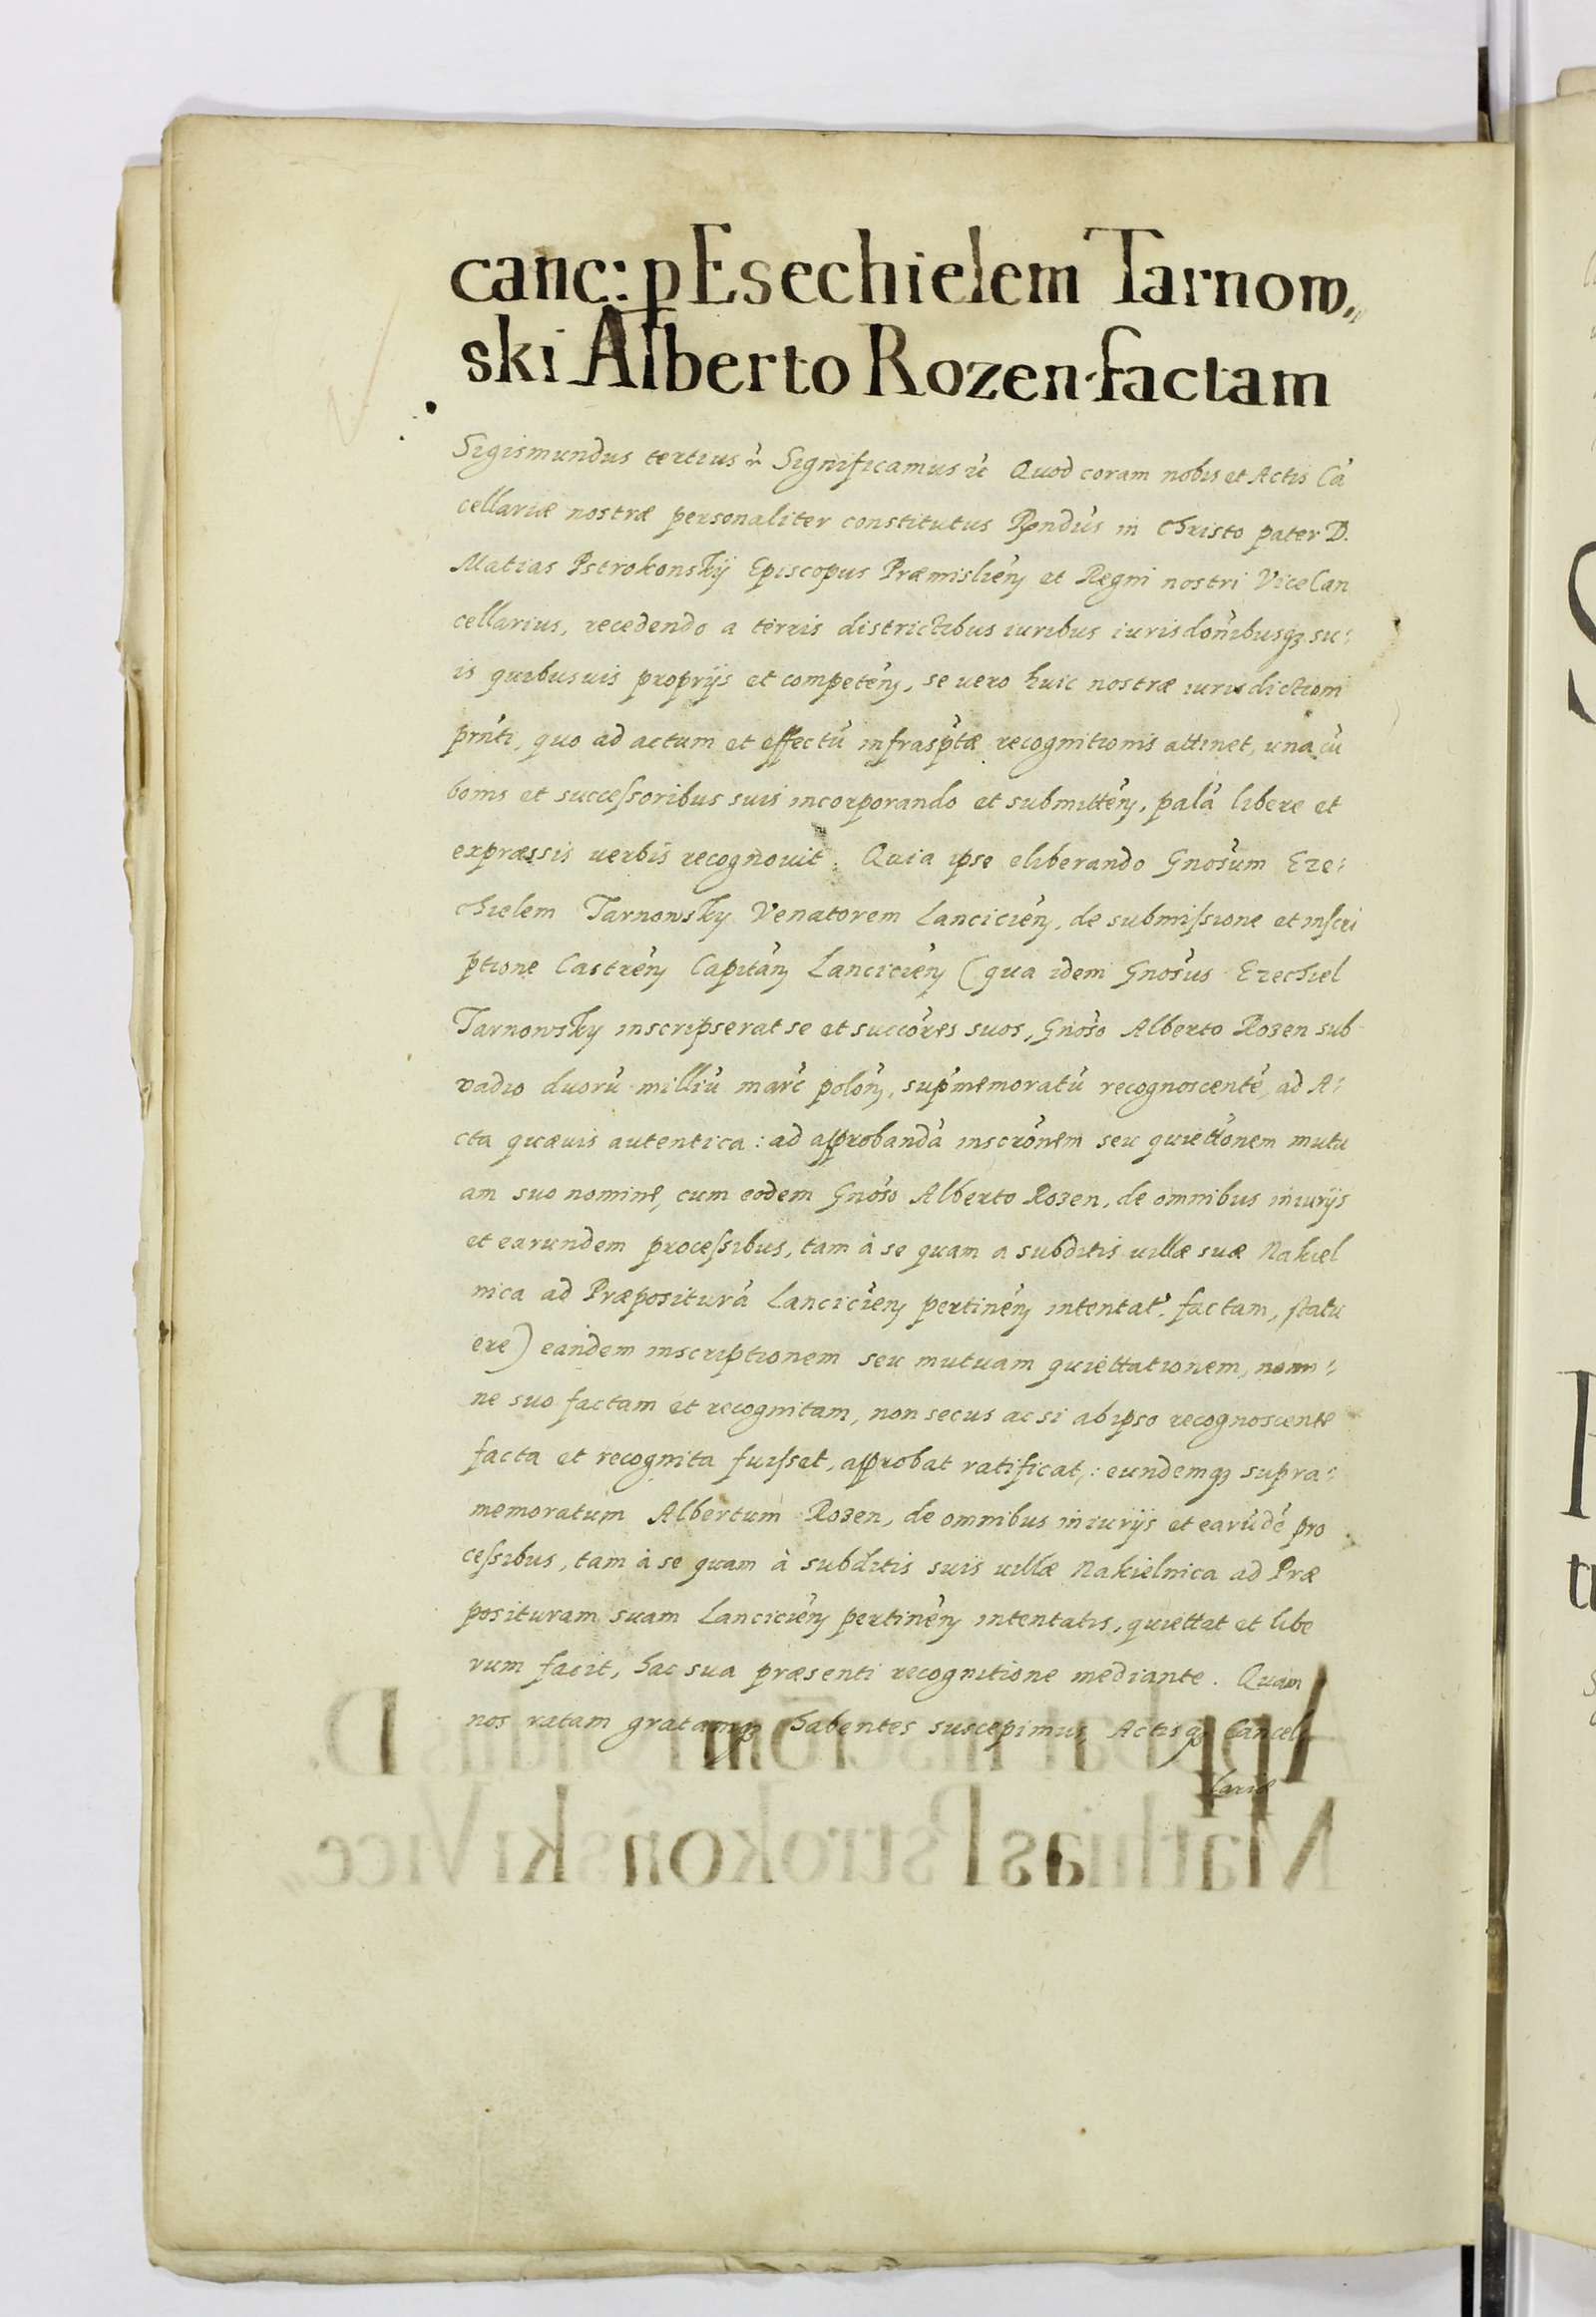 canc: p Esechielem Tarnow„
ski Alberto Rozen factam
Sigismundus tertius ac̃ Significamus ac̃ Quod coram nobis et Actis Cã
cellariæ nostræ personaliter constitutus Rṽndus in Christo pater D.
Matias Pstrokonskij Episcopus Præmislien̄ et Regni nostri ViceCan
cellarius, recedendo a terris districtibus iuribus iurisdõnibusq̃ su:
is quibusuis proprijs et competen̄, se uero huic nostræ iurisdictioni
prñti, quo ad actum et effectũ infrasp̃tæ recognitionis attinet, una cũ
bonis et succeſsoribus suis incorporando et submitten̄, palã libere et
expræssis uerbis recognouit. Quia ipse eliberando Gnõsum Eze:
chielem Tarnowsky Venatorem Lancicien̄, de submiſsione et inſcri
ptione Castren̄ Capitan̄ Lancicien̄ (qua idem Gnõsus Ezechiel
Tarnowsky inscripserat se et succõres suos, Gnõso Alberto Rozen sub
vadio duorũ milliũ marc̃ polon̄, sup̃memoratũ recognoscentẽ, ad A:
cta quævis autentica: ad approbandã inscrõnem seu quiettõnem mutu
am suo nomine, cum eodem Gnõso Alberto Rozen, de omnibus iniurijs
et earundem proceſsibus, tam à se quam a subditis uillæ suæ Nakiel
nica ad Præpositurã Lancicien̄ pertinen̄ intentat̃. factam, ſtatu
ere) eandem inscriptionem seu mutuam quiettationem, nomi:
ne suo factam et recognitam, non secus ac si ab ipso recognoscente
facta et recognita fuiſset, approbat ratificat,: eundemq̃ supra:
memoratum Albertum Rozen, de omnibus iniurijs et earũdẽ pro
ceſsibus, tam à se quam à subditis suis uillæ Nakielnica ad Præ
posituram suam Lancicien̄ pertinen̄ intentatis, quiettat et libe
rum facit, hac sua præsenti recognitione mediante. Quam
nos ratam gratamq̃ habentes suscepimus, Actisq̃ Cancel
lariæ